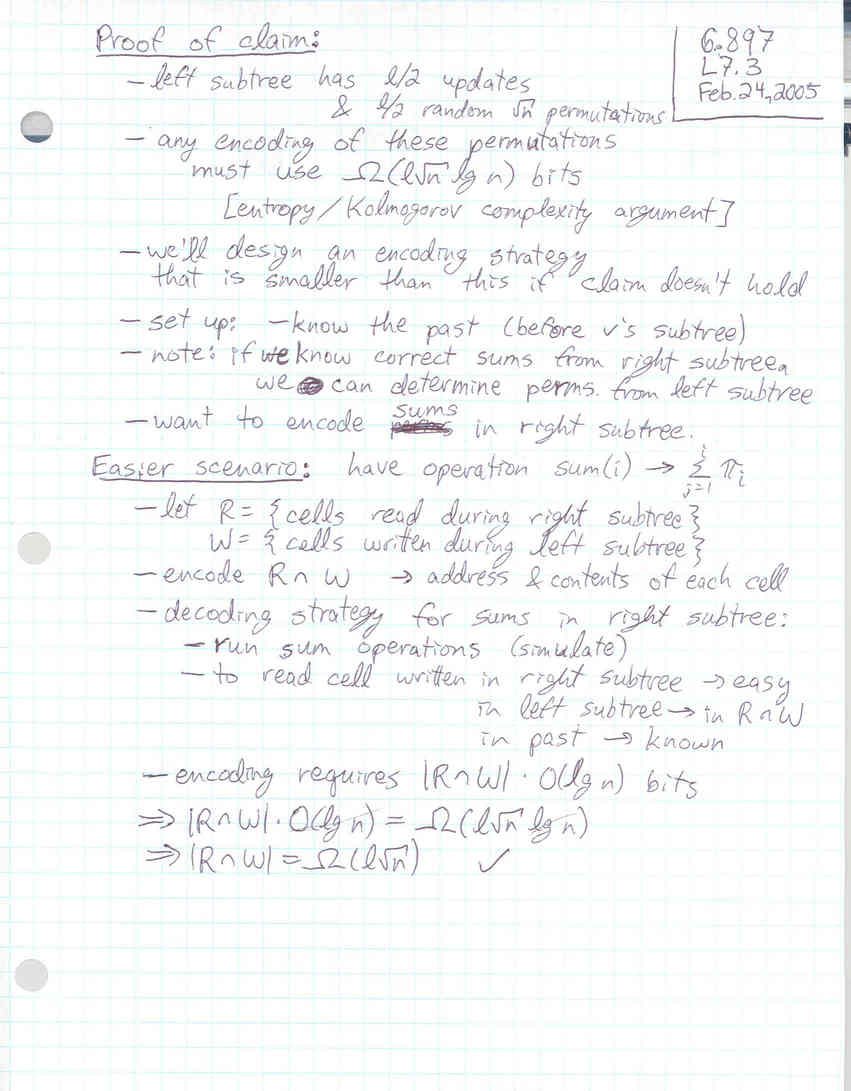 Proof of claim:
6.897
L7.3
Feb. 24, 2005
- left subtree has l/2 updates
& l/2 random √n permutations
- any encoding of these permutations
must use Ω(l√n lg n) bits
[entropy/Kolmogorov complexity argument]
- we'll design an encoding strategy
that is smaller than this if claim doesn't hold
- set up: - know the past (before v's subtree)
- note: if we know correct sums from right subtree,
we can determine perms. from left subtree
- want to encode sums in right subtree.
Easier scenario: have operation sum(i) → Σ_{j=1}^{i} π_i
- let R = {cells read during right subtree}
W = {cells written during left subtree}
- encode R ∩ W → address & contents of each cell
- decoding strategy for sums in right subtree:
- run sum operations (simulate)
- to read cell written in right subtree → easy
in left subtree → in R ∩ W
in past → known
- encoding requires |R ∩ W| · O(lg n) bits
⇒ |R ∩ W| · O(lg n) = Ω(l√n lg n)
⇒ |R ∩ W| = Ω(l√n) ✓